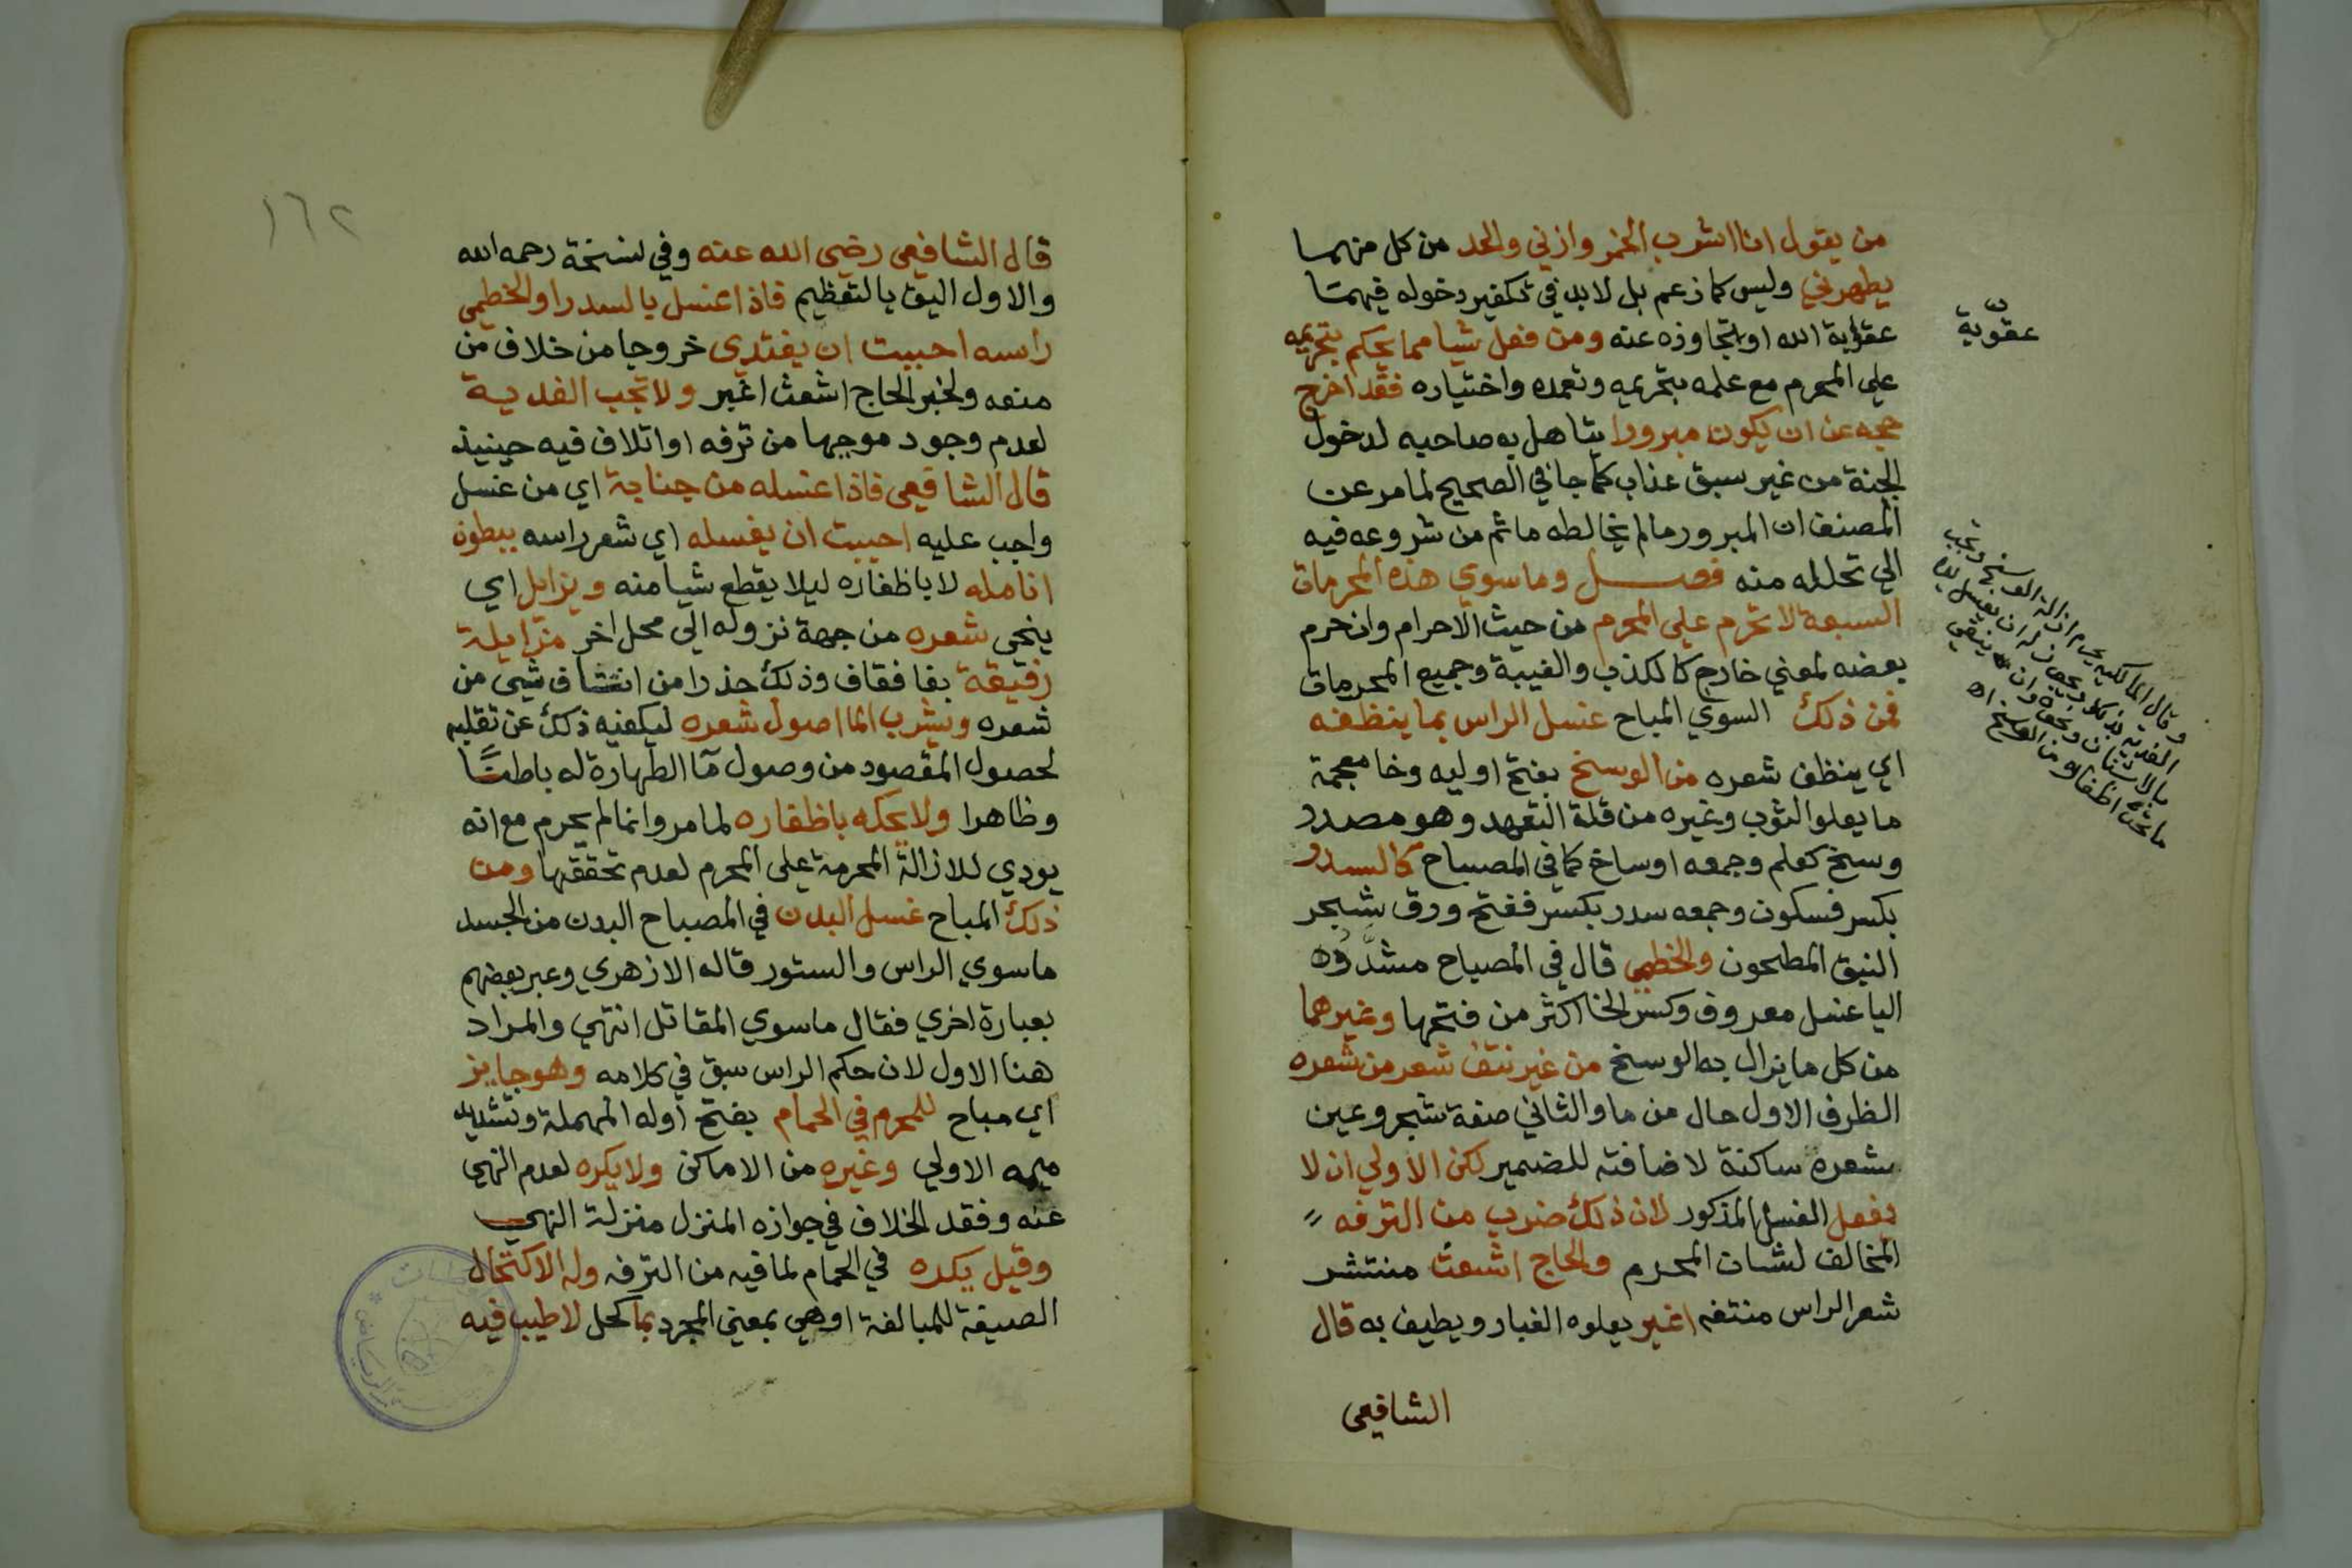 من يقول انا اشرب الخمر وازني والحد من كل منهما
يطهرني وليس كما زعم بل لابد في تكفير دخوله فيهما
عقوبة الله او تجاوزه عنه ومن فعل شيا مما يحكم بتحريمه
على المحرم مع علمه بتحريمه وتعمده واختياره فقد اخرج
حجه عن ان يكون مبرورا يتاهل به صاحبه لدخول
الجنة من غير سبق عذاب كما جا في الصحيح لما مر عن
المصنف ان المبرور مالم يخالطه ماثم من شروعه فيه
الي تحلله منه فصل وما سوي هذه المحرمات
السبعة لا تحرم علي المحرم من حيث الاحرام وان حرم
بعضه لمعني خارج كالكذب والغيبة وجميع المحرمات
فمن ذلك السوي المباح غسل الراس بما ينظفه
اي ينظف شعره من الوسخ بفتح اوليه وخا معجمة
ما يعلو الثوب وغيره من قلة التعهد وهو مصدر
وسخ كعلم وجمعه اوساخ كما في المصباح كالسدر
بكسر فسكون وجمعه سدر بكسر ففتح ورق شجر
النبق المطحون والخطمي قال في المصباح مشدده
اليا غسل معروف وكسر الخا اكثر من فتحها وغيرهما
من كل ما يزال به الوسخ من غير نتف شعر من شعره
الظرف الاول حال من ما والثاني صفة شعر وعين
شعره ساكنة لاضافته للضمير لكن الاولي ان لا
يفعل الغسل المذكور لان ذلك ضرب من الترفه
المخالف لشان المحرم والحاج اشعث منتشر
شعر الراس منتفه اغبر يعلوه الغبار ويطيف به قال
الشافعي
عقوبة
وقال المالكية يحرم ازالة الوسخ وتجب
الفدية بذلك ويجوز له ان يغسل يده
بالاشنان ونحوه وان ينقي
ما تحت اظفاره من الوسخ اه
١٦٢
قال الشافعي رضي الله عنه وفي نسخة رحمه الله
والاول اليق بالتعظيم فاذا غسل بالسدر او الخطمي
راسه احببت ان يفتدي خروجا من خلاف من
منعه ولخبر الحاج اشعث اغبر ولا تجب الفدية
لعدم وجود موجبها من ترفه او اتلاف فيه حينيذ
قال الشافعي فاذا غسله من جنابة اي من غسل
واجب عليه احببت ان يغسله اي شعر راسه ببطون
انامله لا باظفاره ليلا يقطع شيا منه ويزايل اي
ينحي شعره من جهة نزوله الي محل اخر مزايلة
رفيقة بفا فقاف وذلك حذرا من انتتاف شي من
شعره ويشرب الما اصول شعره ليكفيه ذلك عن تقليبه
لحصول المقصود من وصول ما الطهارة له باطنا
وظاهرا ولا يحكه باظفاره لما مر وانما لم يحرم مع انه
يودي للازالة المحرمة على المحرم لعدم تحققها ومن
ذلك المباح غسل البدن في المصباح البدن من الجسد
ما سوي الراس والستور قاله الازهري وعبر بعضهم
بعبارة اخري فقال ما سوي المقاتل انتهي والمراد
هنا الاول لان حكم الراس سبق في كلامه وهو جايز
اي مباح للمحرم في الحمام بفتح اوله المهملة وتشديد
ميمه الاولي وغيره من الاماكن ولا يكره لعدم النهي
عنه وفقد الخلاف في جوازه المنزل منزلة النهي
وقيل يكره في الحمام لما فيه من الترفه وله الاكتحال
الصيغة للمبالغة او هي بمعني المجرد بما كحل لا طيب فيه